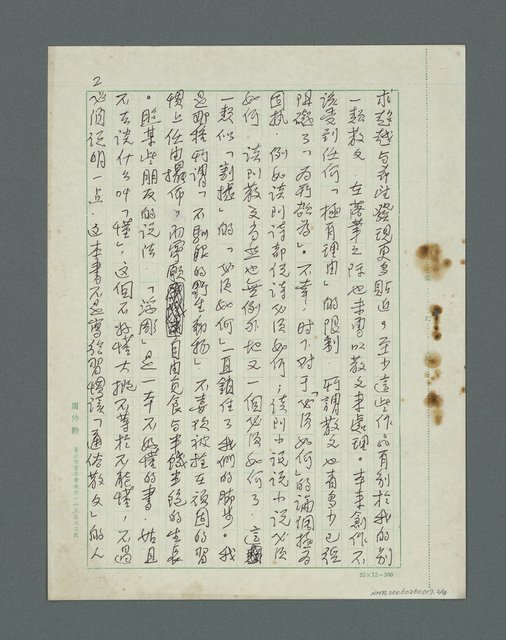 2
求超越與再往發現更多貼近。至少這些作品有別於我的別
一類散文,在落筆之際也未曾以散文來處理。本來創作不
該受到任何「極有理由」的限制,所謂散文也有多少已經
阻礙了「為所欲為」。不幸,時下對于「必須如何」的論調極為
固執,例如談到詩都說詩必須如何;談到小說說小說必須
如何,談到散文當然也無例外地又一個必須如何了。這
一類似「割據」的「必須如何」一直鎖住了我們的脚步。我
是那種所謂「不馴服的野生動物」不喜歡被拴在頑固的習
慣上任由擺佈,而寧願自由覓食與半饑半飽的生長
。照某些朋友的說法,「浮彫」是一本不好懂的書,姑且
不去談什么叫「懂」,這個不好懂大概不等於不能懂,不過
必須說明一点,這本書不是寫給習慣讀「通俗散文」的人
周仲勳
25×12=300
NMTL20060260017 2/4